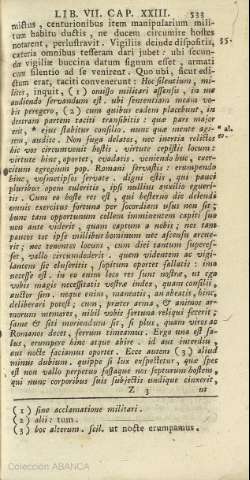 LIB. VII. CAP. XXXIII. 533
mistus, centurionibus item manipularium mili-
tum habitu ductis, ne ducem circumire hostes
notarent, perlustravit. Vigiliis deinde dispositis, 35.
cæteris omnibus tesseram dari jubet: ubi secun-
dæ vigiliæ buccina datum signum esset, armati
cum silentio ad se venirent. Quo ubi, sicut edi-
ctum erat, taciti convenerunt: Hoc silentium, mi-
lites, inquit, (1) omisso militari assensu, in me
audiendo servandum est. ubi sententiam meam vo-
bis peregero, (2) cum quibus eadem placebunt, in
dexteram partem taciti transibitis: quæ pars major
erit, * ejus stabitur consilio. nunc quæ mente agi- * al.
tem, audite. Non fuga delatos, nec inertia relictos
hic vos circumvenit hostis: virtute cepistis locum:
virtute hinc, oportet, evadatis. veniendo huc, exer-
citum egregium pop. Romani servastis: erumpendo
hinc, vosmetipsos servate. digni estis, qui pauci
pluribus opem tuleritis, ipsi nullius auxilio egueri-
tis. Cum eo hoste res est, qui hesterno die delendi
omnis exercitus fortuna per socordiam usus non sit;
hunc tam opportunum collem imminentem capiti suo
non ante viderit, quam captum a nobis; nec tam
paucos tot ipse millibus hominum nec ascensu arcue-
rit, nec tenentes locum, cum diei tantum superes-
set, vallo circumdederit. quem videntem ac vigi-
lantem sic eluseritis, sopitum oportet fallatis: imo
necesse est. in eo enim loco res sunt nostræ, ut ego
vobis magis necessitatis vestræ index, quam consilii,
auctor sim. neque enim, maneatis, an abeatis hinc,
deliberari potest: cum, præter arma, & animos ar-
morum memores, nihil vobis fortuna reliqui fecerit;
fame & siti moriendum sit, si plus, quam viros ac
Romanos decet, ferrum timeamus. Ergo una est sa-
lus, erumpere hinc atque abire. id aut interdiu,
aut nocte faciamus oportet. Ecce autem (3) aliud
minus dubium. quippe si lux exspectetur, quæ spes
est non vallo perpetuo fossaque nos septurum hostem,
qui nunc corporibus suis subjectis undique cinxerit,
Z 3 ut
(1) sine acclamatione militari.
(2) alii: tum.
(3) hoc alterum. scil. ut nocte erumpamus.
Colección ABANCA